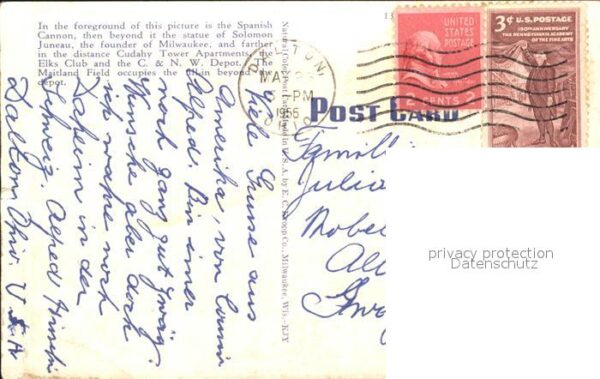 In the foreground of this picture is the Spanish
Cannon, then beyond it the statue of Solomon
Juneau, the founder of Milwaukee, and farther
in the distance Cudahy Tower Apartments, the
Elks Club and the C. & N. W. Depot. The
Maitland Field occupies the fill-in beyond
depot.
UNITED STATES
POSTAGE
2 CENTS 2
3¢ U.S. POSTAGE
150TH ANNIVERSARY
THE PENNSYLVANIA ACADEMY
OF THE FINE ARTS
DALTON
MAY
PM
1955
POST CARD
Natural Color Post Card Made in U. S. A. by E. C. Kropp Co., Milwaukee, Wis.-KJY
Viele Grüsse aus
Amerika, von
Alfred. Bin immer
noch ganz gut zwäg.
Wünsche aber doch
ich wäre noch
Daheim in der
Schweiz. Alfred
Dalton Ohio U S A
Famil
Julia
Robe
privacy protection
Datenschutz